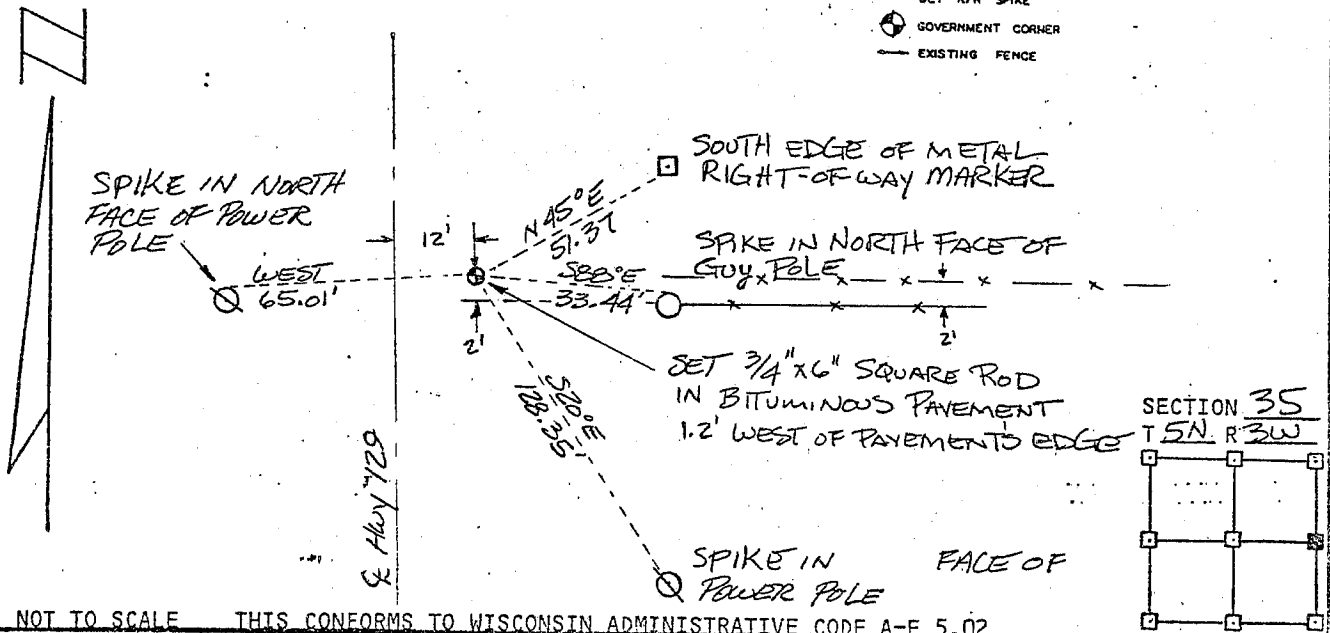 SET SPIKE
GOVERNMENT CORNER
EXISTING FENCE
N
SPIKE IN NORTH
FACE OF POWER
POLE
WEST
65.01'
12'
N 45°E
51.37
SOUTH EDGE OF METAL
RIGHT-OF-WAY MARKER
SPIKE IN NORTH FACE OF
GUY POLE
S88°E
33.44'
2'
2'
SET 3/4"x6" SQUARE ROD
IN BITUMINOUS PAVEMENT
1.2' WEST OF PAVEMENT'S EDGE
S20°E
128.35'
℄ Hwy "129
SPIKE IN FACE OF
POWER POLE
SECTION 35
T 5N R 3W
NOT TO SCALE THIS CONFORMS TO WISCONSIN ADMINISTRATIVE CODE A-E 5.02